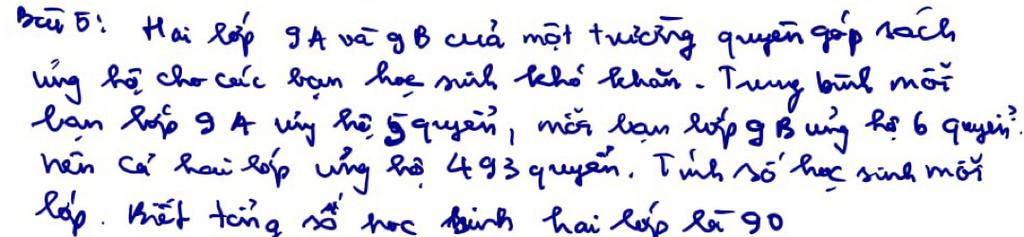 Bài 5: Hai lớp 9A và 9B của một trường quyên góp sách
ủng hộ cho các bạn học sinh khó khăn. Trung bình mỗi
bạn lớp 9A ủng hộ 5 quyển, mỗi bạn lớp 9B ủng hộ 6 quyển.
nên cả hai lớp ủng hộ 493 quyển. Tính số học sinh mỗi
lớp. Biết tổng số học sinh hai lớp là 90